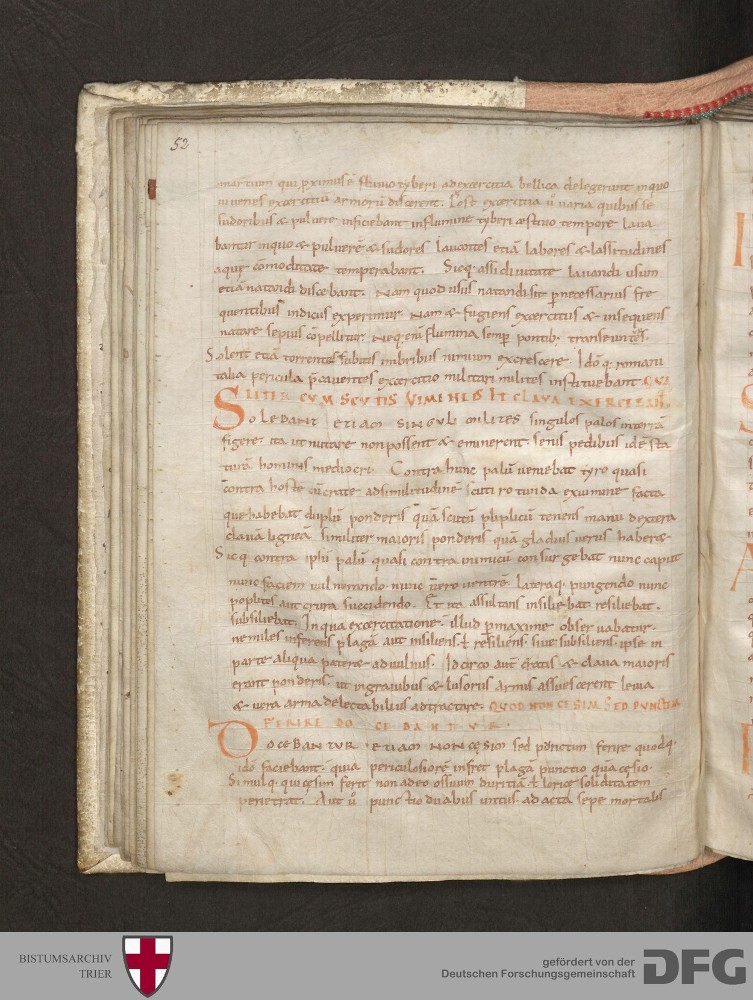 52
martium qui proximus ē fluuio tyberi ad exercitia bellica delegerunt in quo
iuuenes exercitiū armorū discerent. Post exercitia ū uaria quibus se
sudoribus & puluere inficiebant in flumine tyberi aestiuo tempore laua
bantur in quo & puluerē & sudores lauantes etiā labores & lassitudines
aquę cōmoditate temperabant. Sicq. assiduitate lauandi usum
etiā natandi discebant. Nam quod usus natandi sit pnecessarius fre
quentibus indiciis experimur. Nam & fugiens exercitus & insequens
natare sepius cōpellitur. Neq. eni flumina semp pontib;
Solent etiā torrentes subitis imbribus nimium excrescere. Idoq; romani
talia pericula pcauentes exercitio militari milites instituebant. QUA
LITER CUM SCUTIS VIMINEIS ET CLAVA EXERCEBANT.
SOLEBANT ETIAM SINGULI MILITES singulos palos in terrā
figere. ita ut nutare non possent & eminerent. senis pedibus idē sta
turā hominis mediocris. Contra hunc palū ueniebat tyro quasi
contra hostē cū crate ad similitudinē scuti rotunda ex uimine facta
que habebat duplū ponderis quā scutū puplicū tenens manu dextera
clauā ligneā similiter maioris ponderis quā gladius uerus haberet
Sicq. contra ipsū palū quasi contra inimicū consurgebat nunc caput
nunc faciem uulnerando. nunc uero uentrē lateraq. pungendo nunc
poplites aut crura succidendo. Et ita assultans insiliebat resiliebat.
subsiliebat. In qua exercitatione. illud pmaxime obseruabatur.
ne miles inferens plagā aut insiliens. ł resiliens. siue subsiliens. ipse in
parte aliqua pateret ad uulnus. Idcirco aut cratis & claua maioris
erant ponderis. ut in grauibus & lusoriis armis assuescerent leuia
& uera arma delectabilius adtractare. QUOD NON CESIM SED PUNCTIM
FERIRE DOCEBANTUR.
DOCEBANTUR ETIAM NON CĘSIM sed punctim ferire quodq.
idē faciebant. quia periculosiorē infert plagā punctio quā cęsio.
Simulq. qui cęsim ferit non adeo ossium duritiā ł lorice soliditatem
penetrat. Aut ū punctio duabus untiis. adacta sepe mortalis
BISTUMSARCHIV
TRIER
gefördert von der
Deutschen Forschungsgemeinschaft
DFG